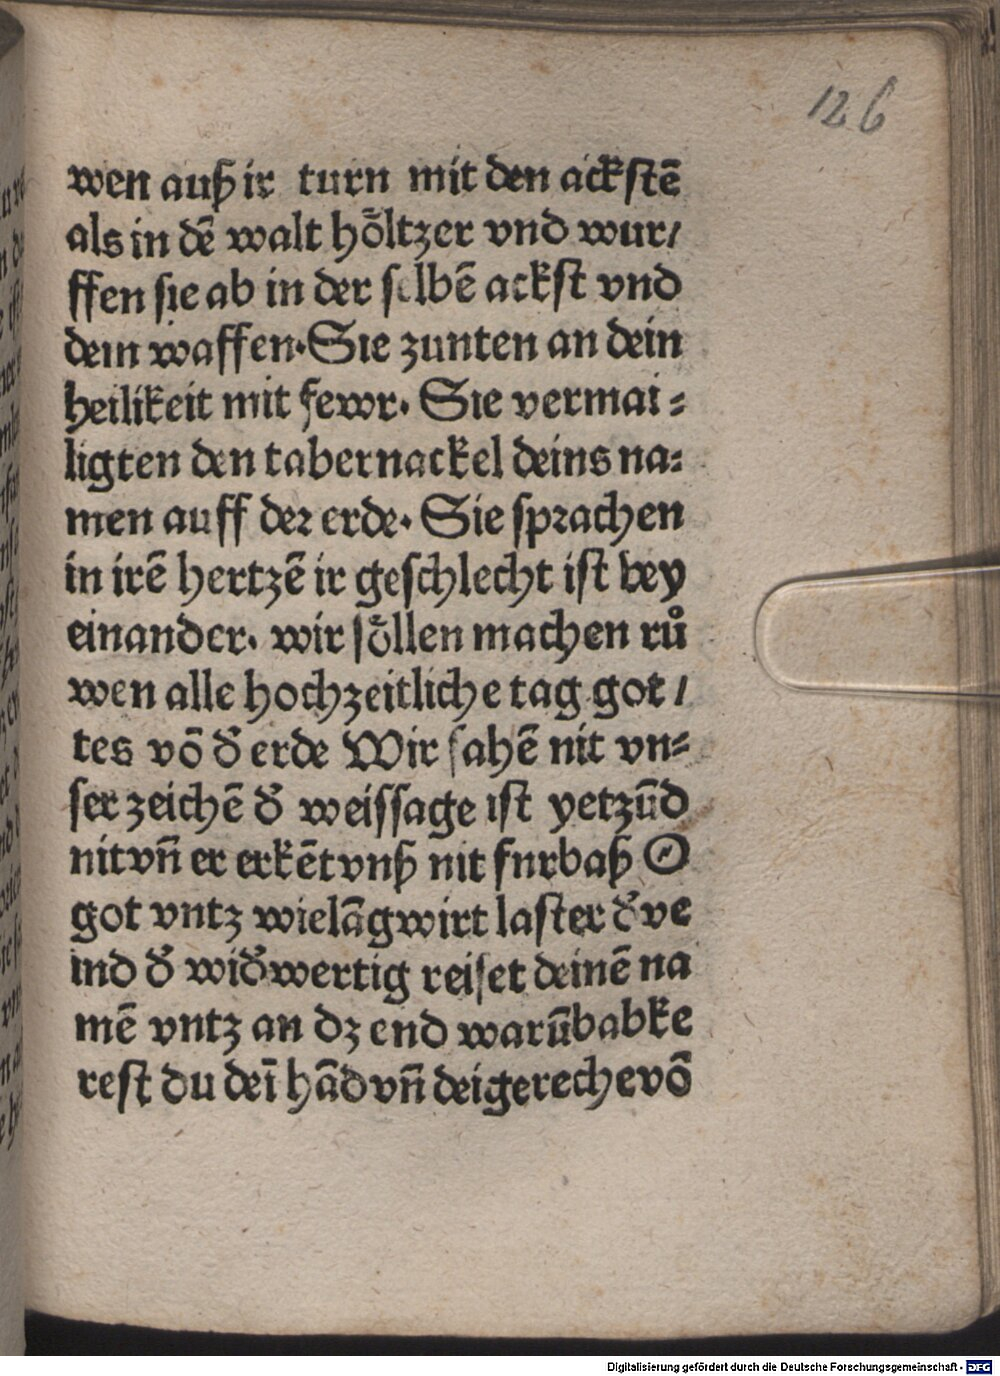 126
wen auß ir turn mit den ackstē
als in dē walt hoͤltzer vnd wur/
ffen sie ab in der selbē ackst vnd
dem waffen. Sie zunten an dein
heilikeit mit fewr. Sie vermai⸗
ligten den tabernackel deins na⸗
men auff der erde. Sie sprachen
in irē hertzē ir geschlecht ist bey
einander. wir soͤllen machen rů
wen alle hochzeitliche tag got/
tes vō d̕ erde Wir sahē nit vn⸗
ser zeichē d̕ weissage ist yetzūd
nit vn̄ er erkēt vnß nit furbaß O
got vntz wielāg wirt laster d̕ ve
ind d̕ wid̕wertig reiset deinē na
mē vntz an dz end warūb abke
rest du deī hād vn̄ dei gereche vō
Digitalisierung gefördert durch die Deutsche Forschungsgemeinschaft - DFG